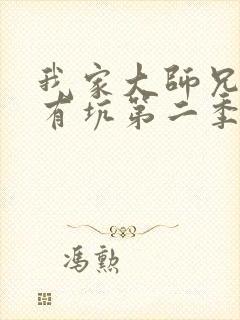 我家大師兄
有坑第二季
馮勲